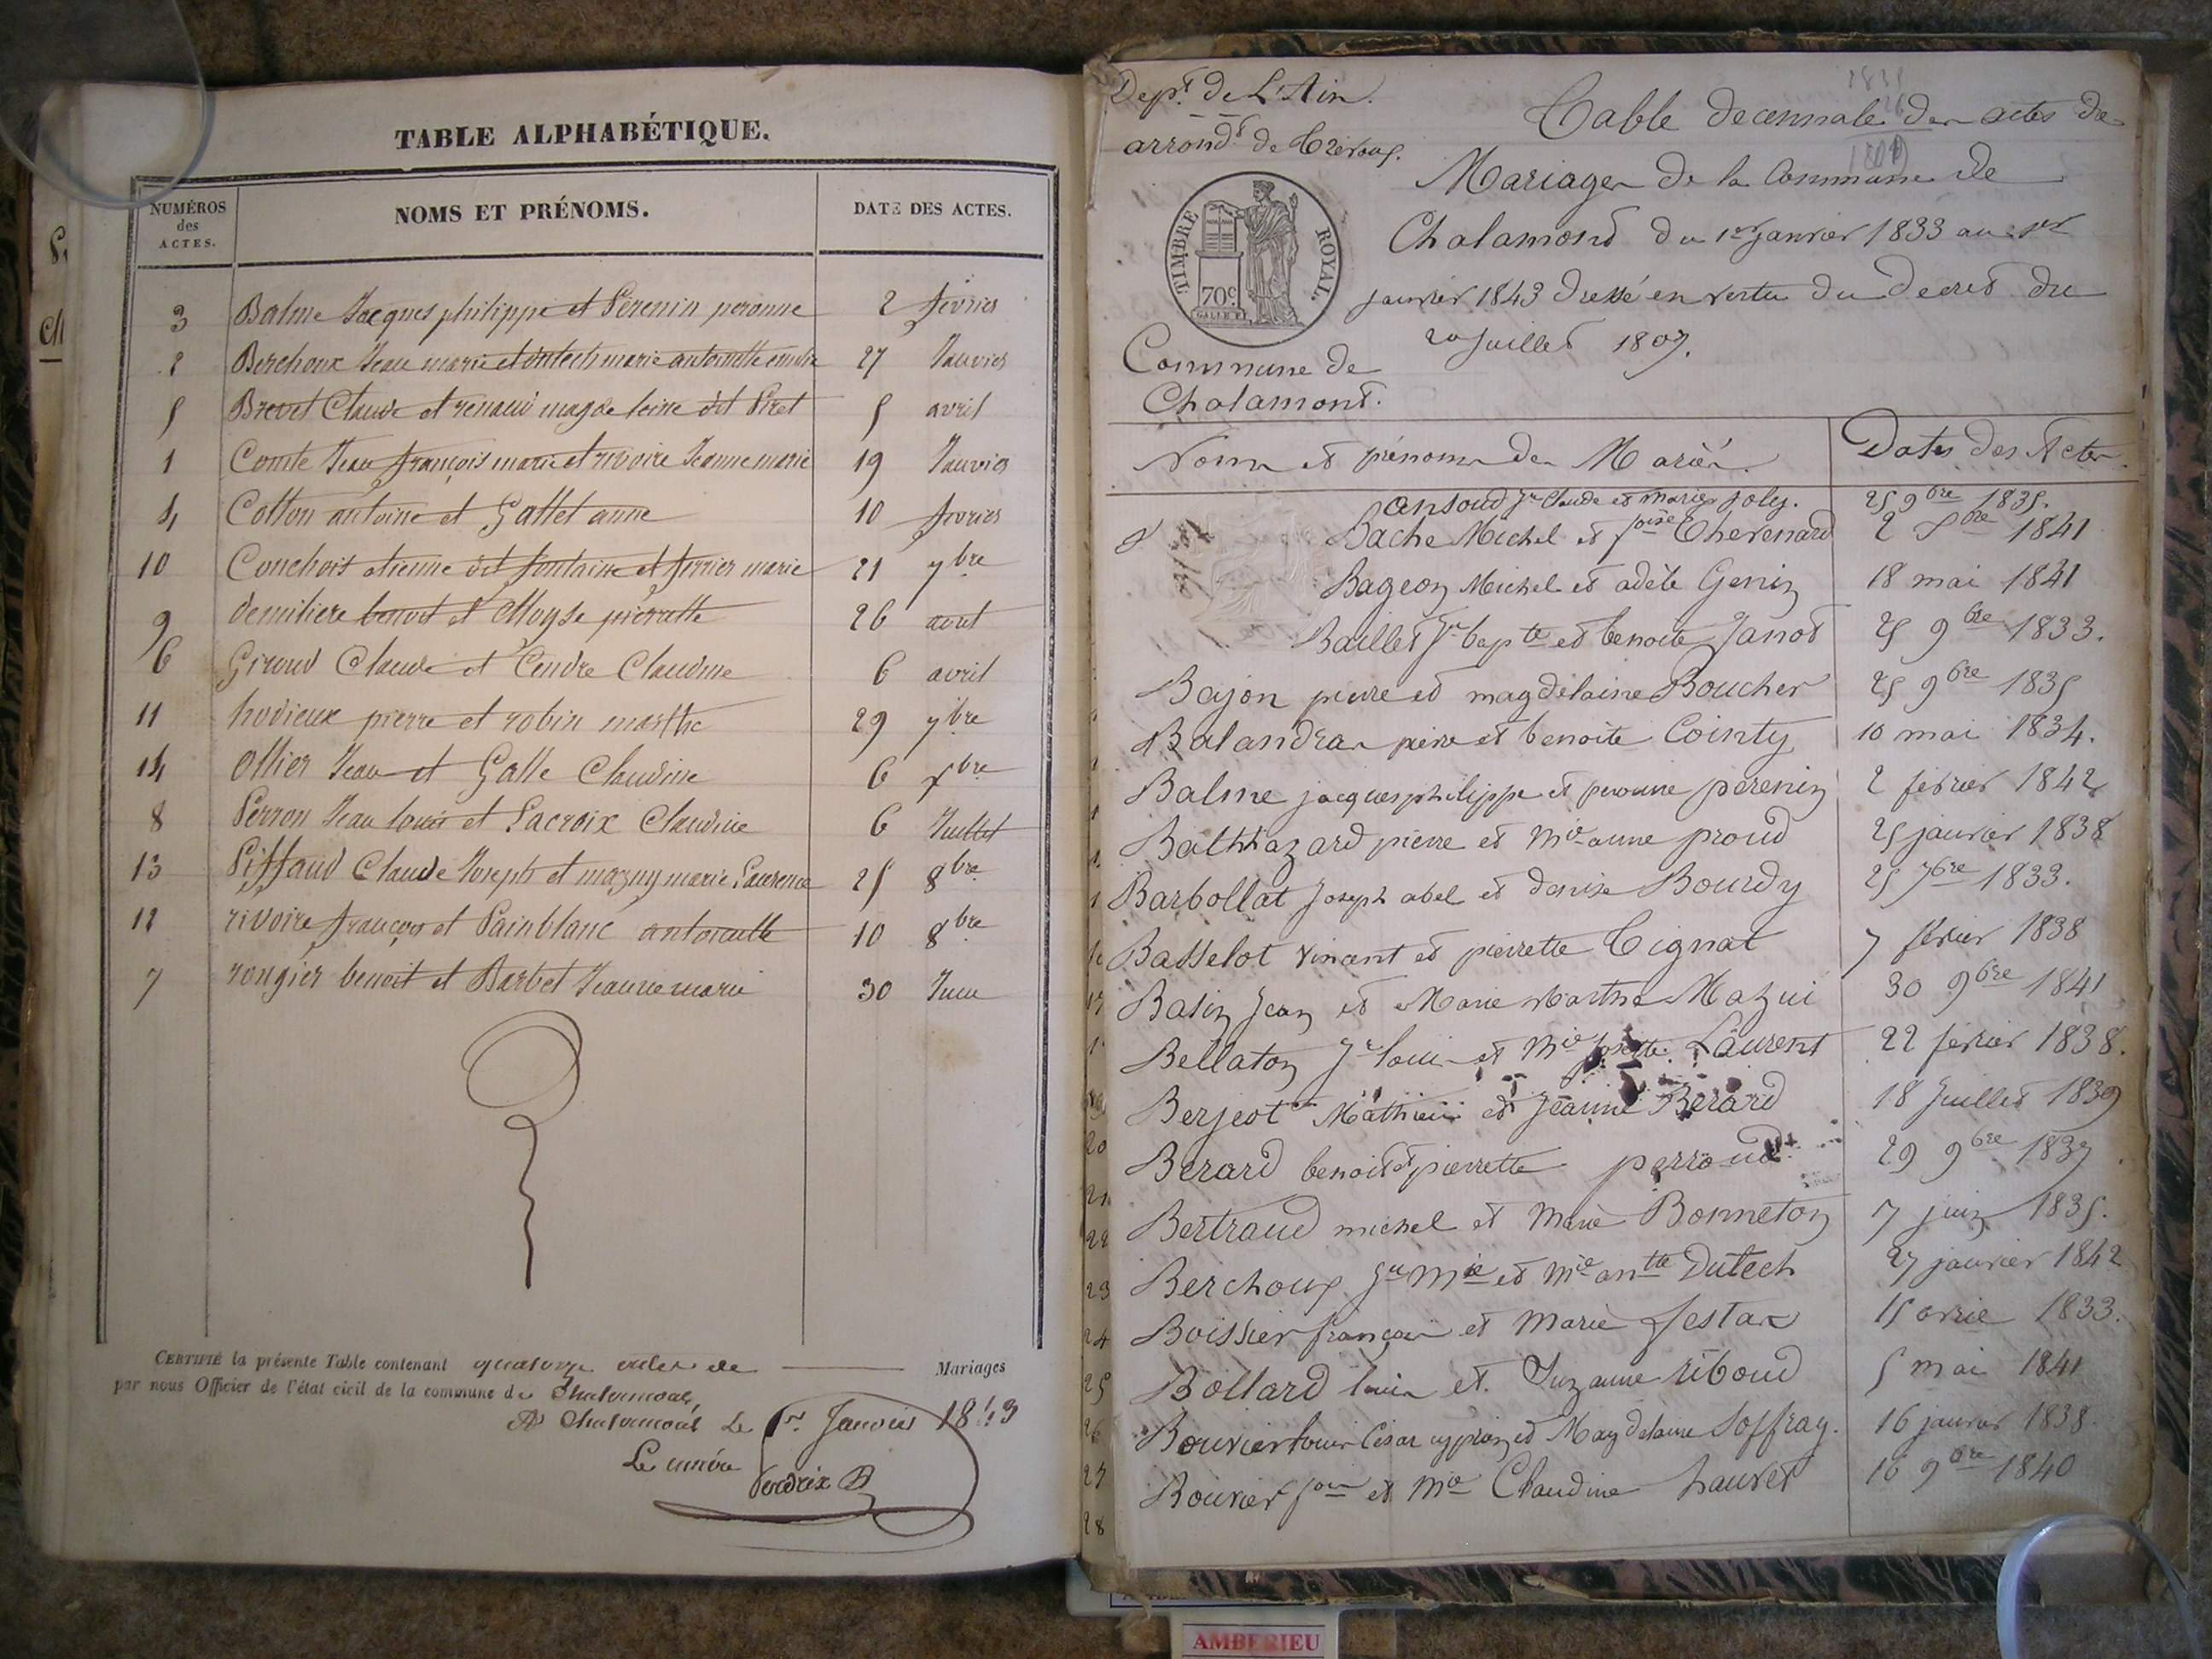 TABLE ALPHABÉTIQUE.
NUMÉROS des ACTES. NOMS ET PRÉNOMS. DATE DES ACTES.
3 Balme Jacques philippe et Perenin peronne 2 février
2 Berchoux Jean marie et dutech marie antoinette 27 Janvier
5 Brevet Claude et renaud magdeleine dit Piret 5 avril
1 Comte Jean françois marie et rivoire Jeanne marie 19 Janvier
4 Cotton antoine et Gallet anne 10 février
10 Couchoit etienne dit fontaine et ferrier marie 21 7bre
9 demiliere benoit et Moyse pierrette 26 aout
6 Giroud Claude et Cendre Claudine 6 avril
11 hodieux pierre et robin marthe 29 7bre
14 Ollier Jean et Galle Claudine 6 xbre
8 Perron Jean louis et Lacroix Claudine 6 Juillet
13 Piffaud Claude Joseph et mazuy marie Laurence 25 8bre
12 rivoire françois et Painblanc antoinette 10 8bre
7 rongier benoit et Barbet Jeanne marie 30 Juin
CERTIFIÉ la présente Table contenant quatorze actes de Mariages
par nous Officier de l'état civil de la commune de Chalamont,
A Chalamont Le 1er Janvier 1843
Le maire
Dept. de L'Ain.
arrondt. de Trévoux.
Table decennale des actes de
Mariages de la Commune de
Chalamond du 1er janvier 1833 au 1er
janvier 1843 dressé en vertu du Decret du
20 Juillet 1807.
TIMBRE ROYAL.
70c.
Commune de
Chalamont.
Noms et prénoms des Mariés. Dates des Actes.
Ansoud Jn Claude et marie Joly. 25 9bre 1835.
Bache Michel et foise Thevenard 2 8bre 1841
Bageon Michel et adèle Genin 18 mai 1841
Baillet Jn bapte et benoite Janot 25 9bre 1833.
Bajon pierre et magdelaine Boucher 25 9bre 1835
Balandras pierre et benoite Cointy 10 mai 1834.
Balme jacques philippe et peronne perenin 2 février 1842
Balthazard pierre et mie anne proud 25 janvier 1838
Barbollat Joseph abel et denise Bourdy 25 7bre 1833.
Basselot vincent et pierrette Tignat 7 février 1838
Basin Jean et Marie Marthe Mazui 30 9bre 1841
Bellaton Jn louis et Mie josette Laurent 22 février 1838.
Berjeot Mathieu et Jeanne Berard 18 Juillet 1839
Berard benoit et pierrette perroud 29 9bre 1837
Bertraud michel et Marie Bonneton 7 juin 1835.
Berchoux Jn Mie et Mie antte Dutech 27 janvier 1842
Boissier françois et Marie Jestas 15 1833.
Bollard louis et Suzanne riboud 5 mai 1841
Bouvier louis César cyprien et Magdelaine Soffray. 16 janvier 1838.
Bouvier fois et Mie Claudine hauvet 16 9bre 1840
20
21
22
23
24
25
26
27
28
AMBERIEU